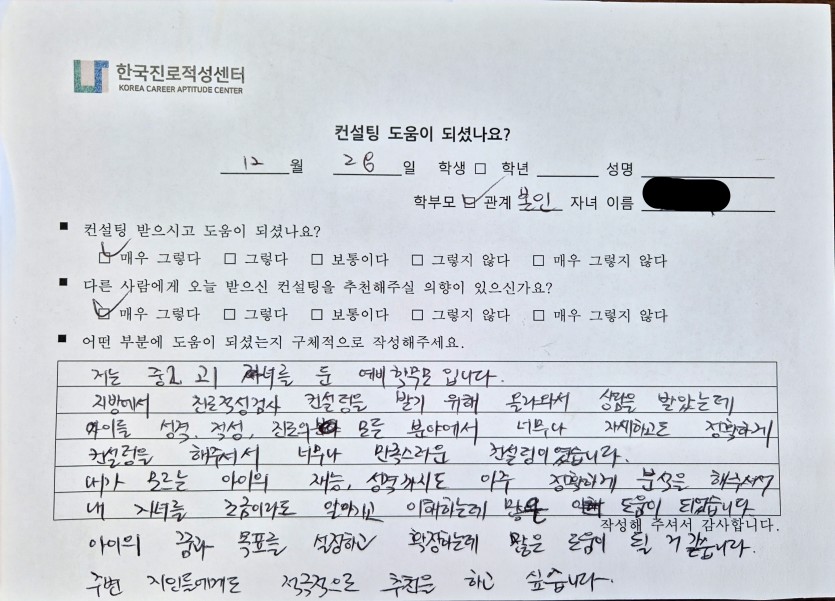 한국진로적성센터
KOREA CAREER APTITUDE CENTER
컨설팅 도움이 되셨나요?
12 월 26 일 학생 □ 학년 성명
학부모 ☑ 관계 본인 자녀 이름
■ 컨설팅 받으시고 도움이 되셨나요?
☑ 매우 그렇다 □ 그렇다 □ 보통이다 □ 그렇지 않다 □ 매우 그렇지 않다
■ 다른 사람에게 오늘 받으신 컨설팅을 추천해주실 의향이 있으신가요?
☑ 매우 그렇다 □ 그렇다 □ 보통이다 □ 그렇지 않다 □ 매우 그렇지 않다
■ 어떤 부분에 도움이 되셨는지 구체적으로 작성해주세요.
저는 중2 고1 자녀를 둔 예비학부모 입니다.
지방에서 진로적성검사 컨설팅을 받기 위해 올라와서 상담을 받았는데
아이들 성격, 적성, 진로의 모든 분야에서 너무나 자세하고도 정확하게
컨설팅을 해주셔서 너무나 만족스러운 컨설팅이였습니다.
내가 모르는 아이의 재능, 성격까지도 아주 정확하게 분석을 해주셔서
내 자녀를 조금이라도 알아가고 이해하는데 많은 도움이 되었습니다
작성해 주셔서 감사합니다.
아이의 꿈과 목표를 설정하고 확장하는데 많은 도움이 될 거 같습니다.
주변 지인들에게도 적극적으로 추천을 하고 싶습니다.